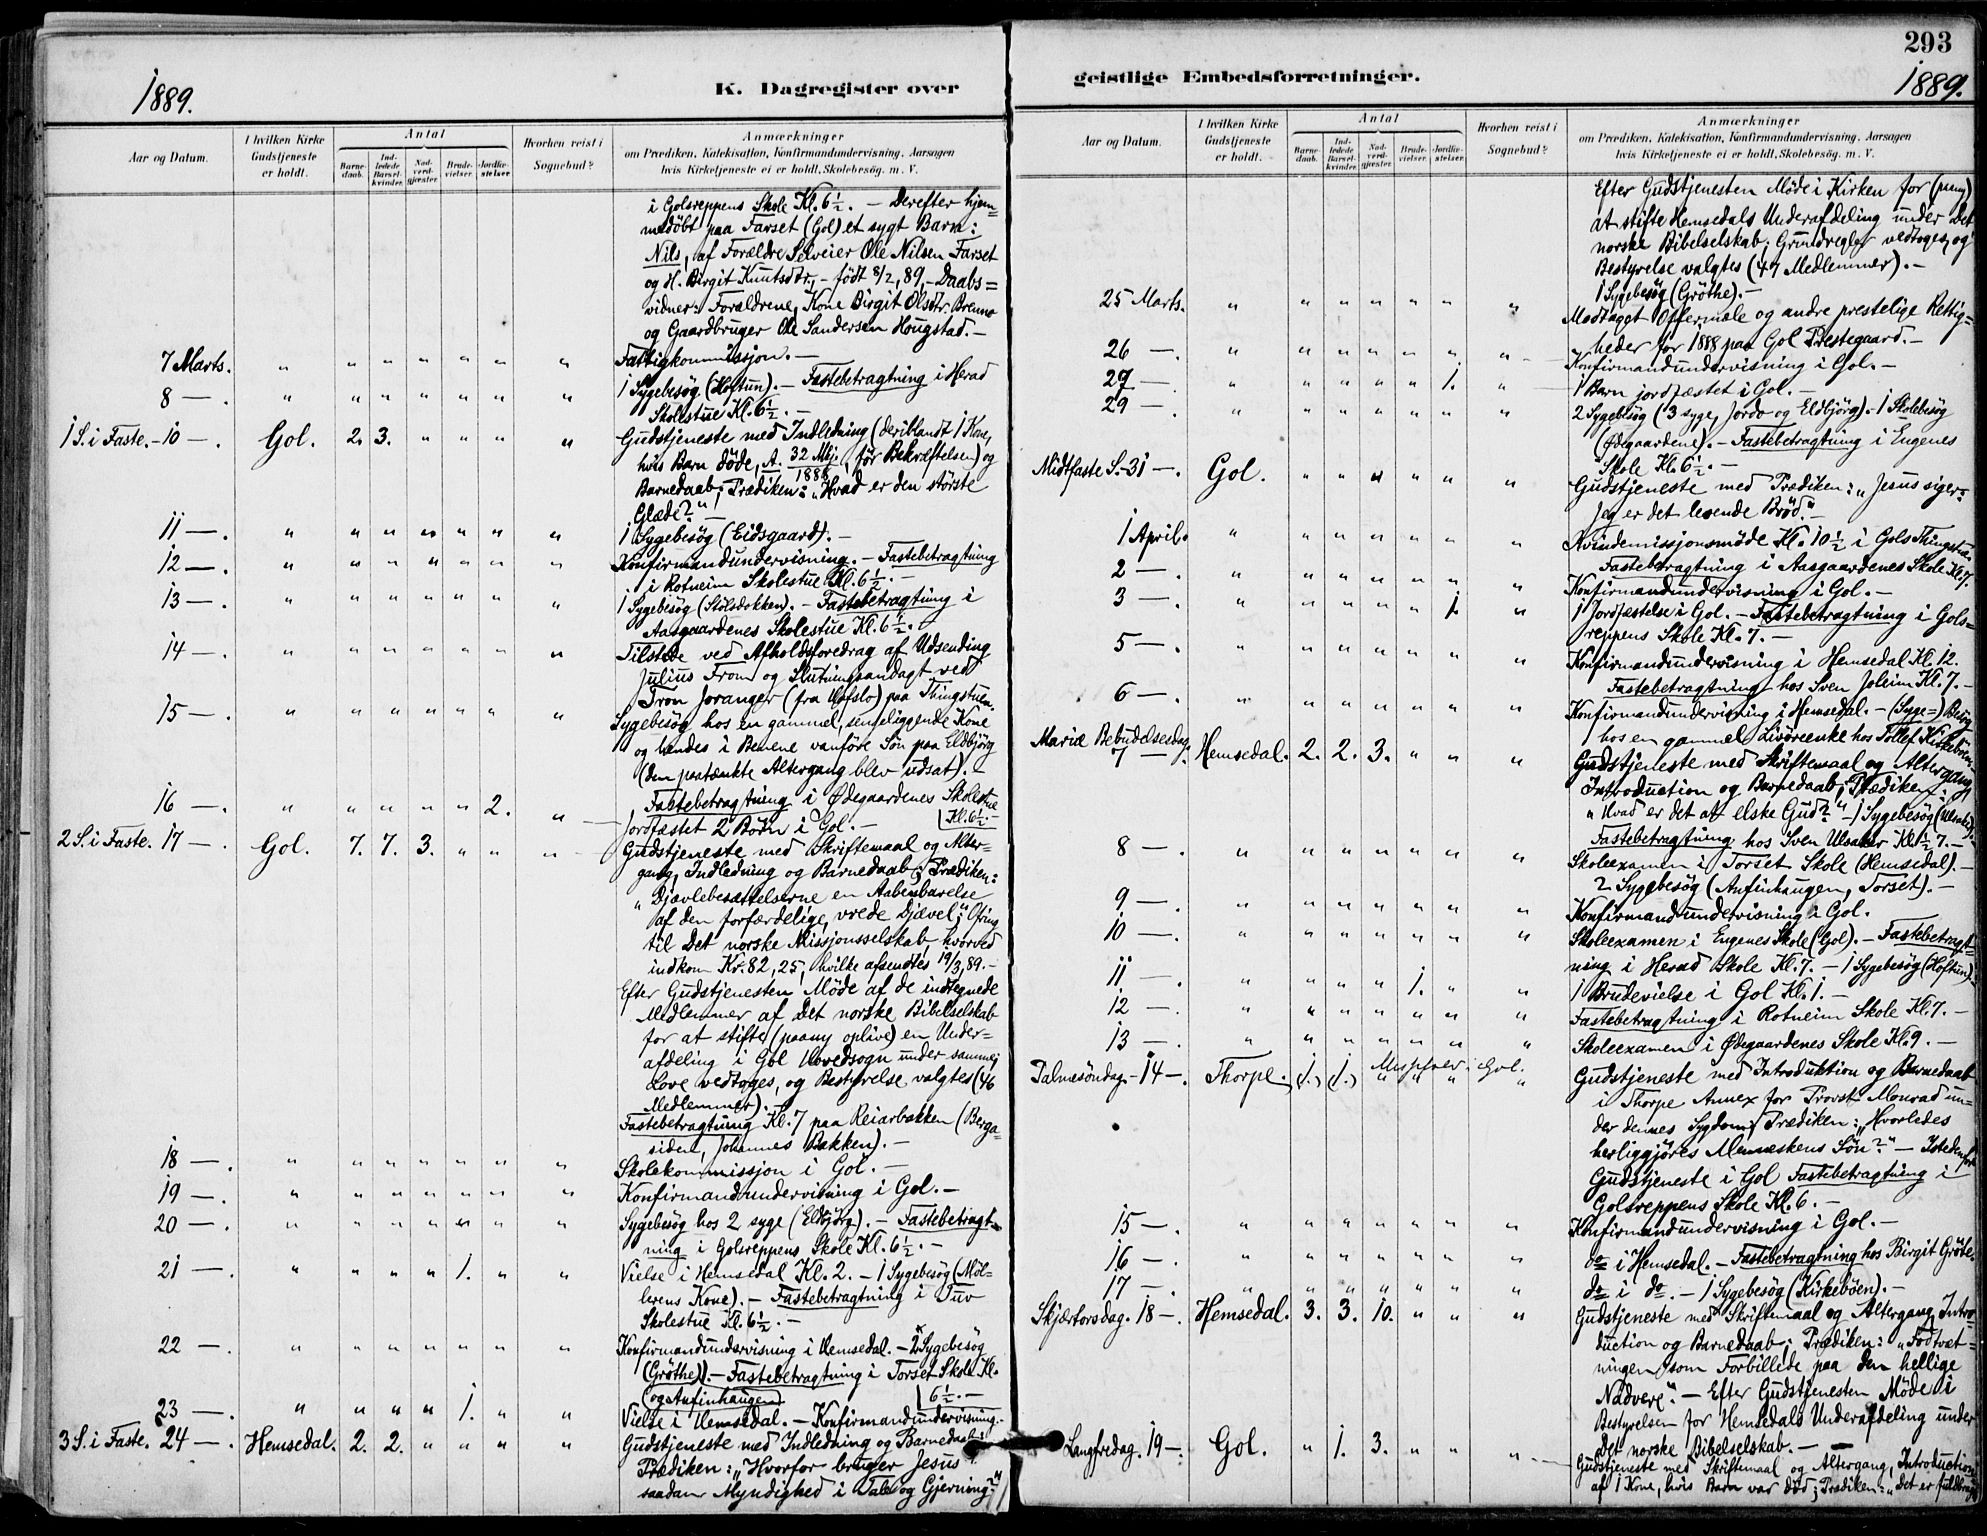 293
1889.
K. Dagregister over
geistlige Embedsforretninger.
1889.
Aar og Datum.
I hvilken Kirke Gudstjeneste er holdt.
Antal
Barne-daab.
Ind-ledede Barsel-kvinder.
Nad-verd-gjæster.
Brude-vielser.
Jordfæ-stelser.
Hvorhen reist i Sognebud?
Anmærkninger
om Prædiken, Katekisation, Konfirmandundervisning, Aarsagen
hvis Kirketjeneste ei er holdt, Skolebesög. m. V.
i Golsreppens Skole Kl. 6½. — Derefter hjem=
medöbt paa Farset (Gol) et sygt Barn:
Nils, af Forældre Selveier Ole Nilsen Farset
og H. Birgit Knutsdtr., - födt 8/2, 89, - Daabs=
vidner: Forældrene, Kone Birgit Olsdtr. Brenno
og Gaardbruger Ole Sandersen Hougstad. —
7 Marts. " " " " " " " Fattigkommissjon. —
8 — . " " " " " " " 1 Sygebesög (Hoftun). — Fastebetragtning i Herad
Skolestue Kl. 6½. —
1 S. i Faste. - 10 — . Gol. 2. 3. " " " " Gudstjeneste med Indledning (deriblandt 1 Kone,
hvis Barn döde, A. 32 Mkj. 1888, för Bekræftelsen) og
Barnedaab; Prædiken: „Hvad er den störste
Glæde?" —
11 — . " " " " " " " 1 Sygebesög (Eidsgaard). —
12 — . " " " " " " " Konfirmandundervisning. — Fastebetragtning
i Rotneim Skolestue Kl. 6½. —
13 — . " " " " " " " 1 Sygebesög (Stölsdokken). — Fastebetragtning i
Aasgaardenes Skolestue Kl. 6½.
14 — . " " " " " " " Tilstede ved Afholdsforedrag af Udsending
Julius Trom og Slutningsandagt ved
Tron Joranger (fra Hofslo) paa Thingstuen.
15 — . " " " " " " " Sygebesög hos en gammel, sengeliggende Kone
og hendes i Benene vanföre Sön paa Eldbjörg
(den paatænkte Altergang blev udsat). —
Fastebetragtning i Ødegaardenes Skolestue
Kl. 6½. —
16 — . " " " " " 2. " Jordfæstet 2 Börn i Gol. —
2 S. i Faste. 17 — . Gol. 7. 7. 3. " " " Gudstjeneste med Skriftemaal og Alter-
gang, Indledning og Barnedaab; Prædiken:
„Djævlebesættelserne en Aabenbarelse
af den forfærdelige, vrede Djævel"; Ofring
til Det norske Missjonsselskab, hvorved
indkom Kr. 82,25, hvilke afsendtes 19/3, 89. —
Efter Gudstjenesten Möde af de indtegnede
Medlemmer af Det norske Bibelselskab
for at stifte (paany oplive) en Under-
afdeling i Gol Hovedsogn under samme;
Love vedtoges, og Bestyrelse valgtes (46
Medlemmer).
Fastebetragtning Kl. 7 paa Reiarbakken (Berga-
siden, Johannes Bakken). —
18 — . " " " " " " " Skolekommissjon i Gol. —
19 — . " " " " " " " Konfirmandundervisning i Gol. —
20 — . " " " " " " " Sygebesög hos 2 syge (Eldbjörg). — Fastebetragt-
ning i Golsreppens Skole Kl. 6½. —
21 — . " " " " 1. " " Vielse i Hemsedal Kl. 2. — 1 Sygebesög (Möl-
lerens Kone). — Fastebetragtning i Tuv
Skolestue Kl. 6½. —
22 — . " " " " " " " Konfirmandundervisning i Hemsedal. — 2 Sygebesög
(Gröthe). — Fastebetragtning i Torset Skole Kl.
(og Anfinhaugen) 6½. —
23 — . " " " " 1. " " Vielse i Hemsedal. — Konfirmandundervisning. —
3 S. i Faste. 24 — . Hemsedal. 2. 2. " " " " Gudstjeneste med Indledning og Barnedaab;
Prædiken: „Hvorfor bruger Jesus
saadan Myndighed i Tale og Gjerning?"
Aar og Datum.
I hvilken Kirke Gudstjeneste er holdt.
Antal
Barne-daab.
Ind-ledede Barsel-kvinder.
Nad-verd-gjæster.
Brude-vielser.
Jordfæ-stelser.
Hvorhen reist i Sognebud?
Anmærkninger
om Prædiken, Katekisation, Konfirmandundervisning, Aarsagen
hvis Kirketjeneste ei er holdt, Skolebesög. m. V.
Efter Gudstjenesten Möde i Kirken for (paany)
at stifte Hemsedals Underafdeling under Det
norske Bibelselskab; Grundregler vedtoges, og
Bestyrelse valgtes (47 Medlemmer). —
1 Sygebesög (Gröthe). —
25 Marts. " " " " " " " Modtaget Offermæle og andre prestelige Rettig=
heder for 1888 paa Gol Prestegaard. —
26 — . " " " " " " " Konfirmandundervisning i Gol. —
27 — . " " " " " 1. " 1 Barn jordfæstet i Gol. —
29 — . " " " " " " " 2 Sygebesög (3 syge, Jordo og Eldbjörg). - 1 Skolebesög
(Ødegaardene). — Fastebetragtning i Engenes
Skole Kl. 6½. —
Midtfaste S. - 31 — . Gol. " " " " " " Gudstjeneste med Prædiken: „Jesus siger:
Jeg er det levende Bröd." —
1 April. " " " " " " " Kvindemissjonsmöde Kl. 10½ i Gols Thingstue.
Fastebetragtning i Aasgaardenes Skole Kl. 7.
2 — . " " " " " " " Konfirmandundervisning i Gol. —
3 — . " " " " " 1. " 1 Jordfæstelse i Gol. — Fastebetragtning i Gols=
reppens Skole Kl. 7. —
5 — . " " " " " " " Konfirmandundervisning i Hemsedal Kl. 12.
Fastebetragtning hos Sven Joleim Kl. 7. —
6 — . " " " " " " " Konfirmandundervisning i Hemsedal. — (Syge=) Besög
hos en gammel Livöreenke hos Tollef Kirkeböen.
Mariæ Bebudelsesdag. 7 — . Hemsedal. 2. 2. 3. " " " Gudstjeneste med Skriftemaal og Altergang,
Introduction og Barnedaab; Prædiken:
„Hvad er det at elske Gud?" — 1 Sygebesög (Ulsaker).
Fastebetragtning hos Sven Ulsaker Kl. ½ 7. —
8 — . " " " " " " " Skoleexamen i Torset Skole (Hemsedal). —
2 Sygebesög (Anfinhaugen, Torset). —
9 — . " " " " " " " Konfirmandundervisning i Gol.
10 — . " " " " " " " Skoleexamen i Engenes Skole (Gol). — Fastebetragt-
ning i Herad Skole Kl. 7. — 1 Sygebesög (Hoftun). —
11 — . " " " " 1. " " 1 Brudevielse i Gol Kl. 1. —
12 — . " " " " " " " Fastebetragtning i Rotneim Skole Kl. 7. —
13 — . " " " " " " " Skoleexamen i Ødegaardenes Skole Kl. 9. —
Palmesöndag. - 14 — . Thorpe. (1.) (1.) " " " Gol. " Gudstjeneste med Introduktion og Barnedaab
i Thorpe Annex for Provst Monrad un-
der dennes Sygdom; Prædiken: „Hvorledes
herliggjöres Menneskens Sön?" — Istedenfor
Gudstjeneste i Gol Fastebetragtning i
Golsreppens Skole Kl. 6. —
15 — . " " " " " " " Konfirmandundervisning i Gol. —
16 — . " " " " " " " do i Hemsedal. — Fastebetragtning hos Birgit Gröte.
17 — . " " " " " " " do i do. — 1 Sygebesög (Kirkeböen). —
Skjærtorsdag. 18 — . Hemsedal. 3. 3. 10. " " " Gudstjeneste med Skriftemaal og Altergang, Intro-
duction og Barnedaab; Prædiken: „Fodtvæt=
ningen som Forbillede paa den hellige
Nadvere." — Efter Gudstjenesten Möde i
Bestyrelsen for Hemsedals Underafdeling under
Det norske Bibelselskab. —
Langfredag. 19 — . Gol. " 1. 3. " " " Gudstjeneste med Skriftemaal og Altergang, Introduction
af 1 Kone, hvis Barn var död; Prædiken: „Det er fuldbragt